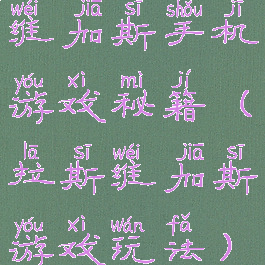 wéi jiā sī shǒu jī
维加斯手机
yóu xì mì jí
游戏秘籍（
lā sī wéi jiā sī
拉斯维加斯
yóu xì wán fǎ
游戏玩法）